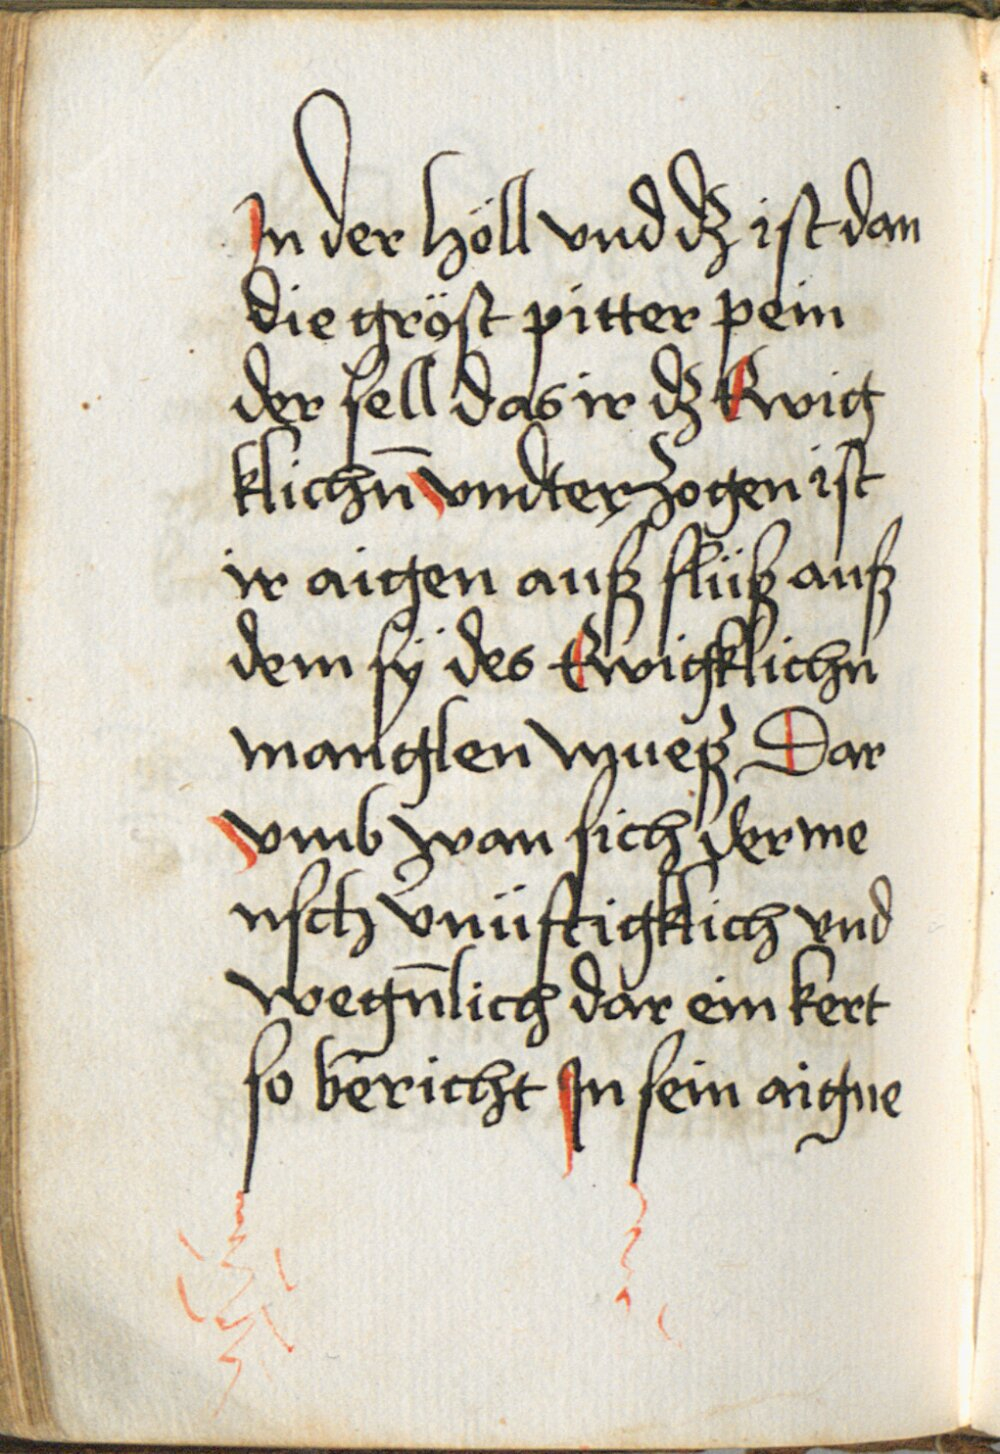 In der höll vnd dz ist dan
die gröst pitter pein
der sell das ir dz Ewig
klichn̄ vndterzogen ist
ir aigen auß flüß auß
dem sÿ des Ewigklichn
manglen mueß Dar
vmb wan sich der me
nsch v̄nüftigklich vnd
wegn̄lich dar ein kert
so bericht In sein aigne